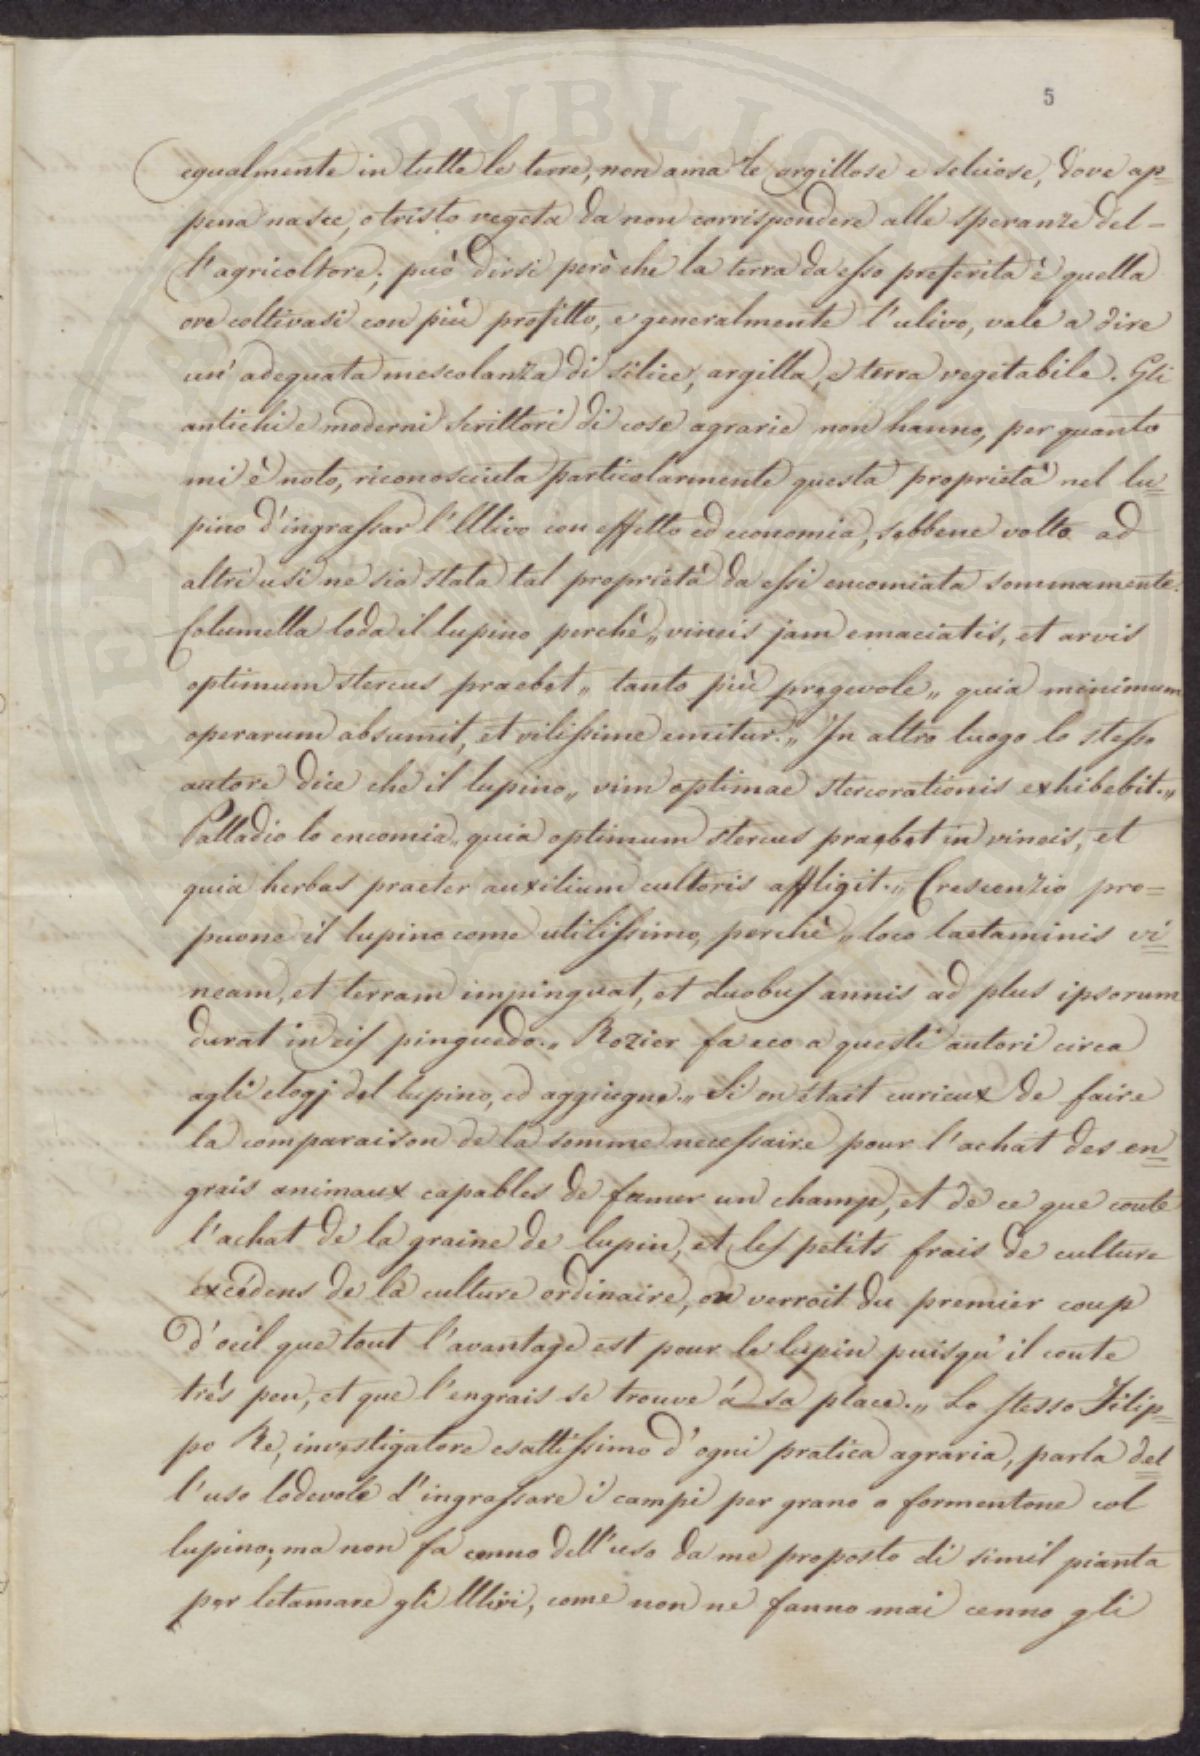 5
egualmente in tutte le terre, non ama le argillose e selciose, dove ap=
pena nasce, o tristo vegeta da non corrispondere alle speranze del=
l'agricoltore; può dirsi però che la terra da esso preferita è quella
ove coltivasi con più profitto, e generalmente l'ulivo, vale a dire
un'adeguata mescolanza di silice, argilla, e terra vegetabile. Gli
antichi e moderni scrittori di cose agrarie non hanno, per quanto
mi è noto, riconosciuta particolarmente questa proprietà nel lu=
pino d'ingrassar l'Ulivo con effetto ed economia, sebbene volto ad
altri usi ne sia stata tal proprietà da essi encomiata sommamente.
Columella loda il lupino perchè „ vineis jam emaciatis, et arvis
optimum stercus praebet „ tanto più pregevole „ quia minimum
operarum absumit, et vilissime emitur. „ In altro luogo lo stesso
autore dice che il lupino „ vim optimae stercorationis exhibebit. „
Palladio lo encomia „ quia optimum stercus praebet in vineis, et
quia herbas praeter auxilium cultoris affligit. „ Crescenzio pro=
puone il lupino come utilissimo, perchè „ loco laetaminis vi=
neam, et terram impinguat, et duobus annis ad plus ipsorum
durat in eis pinguedo. „ Rozier fa eco a questi autori circa
agli elogj del lupino, ed aggiugne. „ Si on était curieux de faire
la comparaison de la somme necessaire pour l'achat des en=
grais animaux capables de fumer un champ, et de ce que coute
l'achat de la graine de lupin, et les petits frais de culture
excédens de la culture ordinaire, on verroit du premier coup
d'oeil que tout l'avantage est pour le lupin puisqu'il coute
très peu, et que l'engrais se trouve á sa place. „ Lo stesso Filip=
po Re, investigatore esattissimo d'ogni pratica agraria, parla del=
l'uso lodevole d'ingrassare i campi per grano o formentone col
lupino; ma non fa cenno dell'uso da me proposto di simil pianta
per letamare gli Ulivi, come non ne fanno mai cenno gli